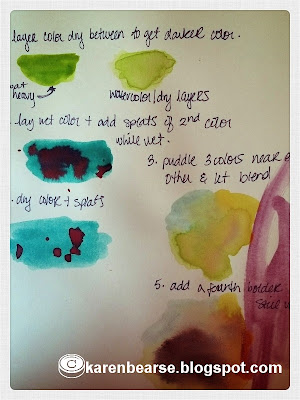 layer color dry between to get darker color.
heavy
watercolor/dry layers
lay wet color + add splats of 2nd color
while wet.
. dry color + splats
3. puddle 3 colors near
other & let blend
5. add a fourth bolder
©karenbearse.blogspot.com